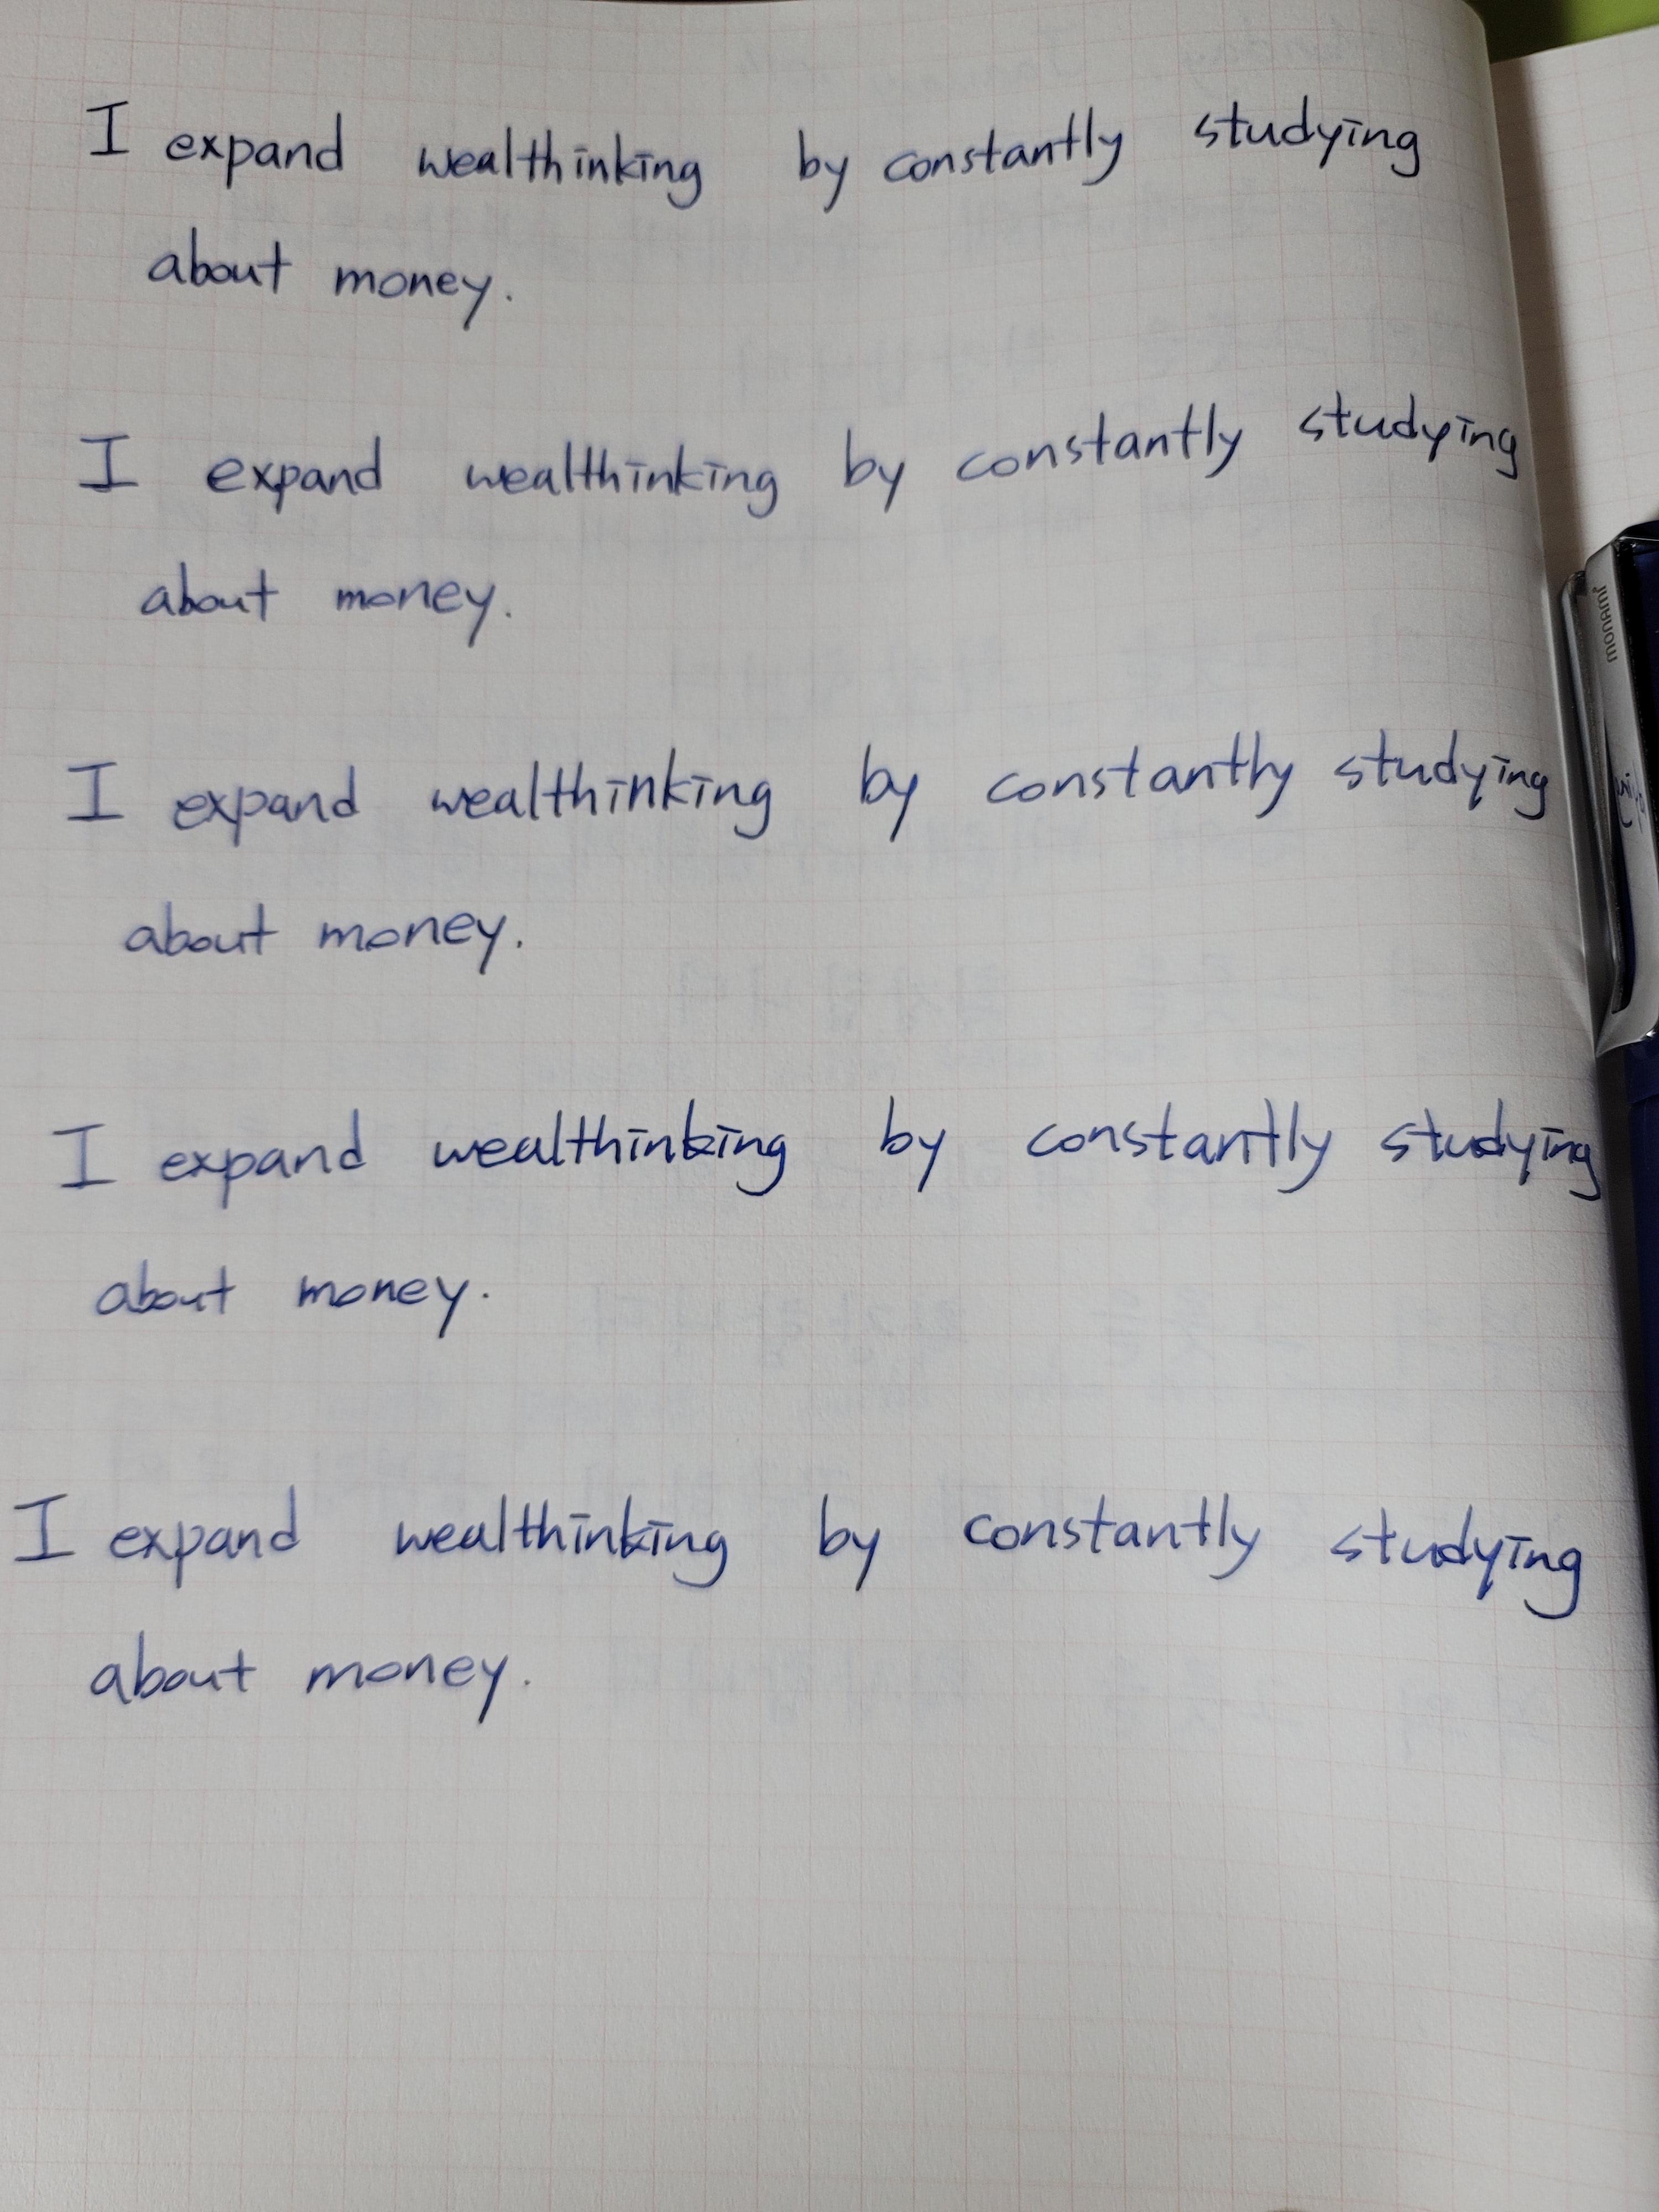 I expand wealthinking by constantly studying
about money.
I expand wealthinking by constantly studying
about money.
I expand wealthinking by constantly studying
about money.
I expand wealthinking by constantly studying
about money.
I expand wealthinking by constantly studying
about money.
monami